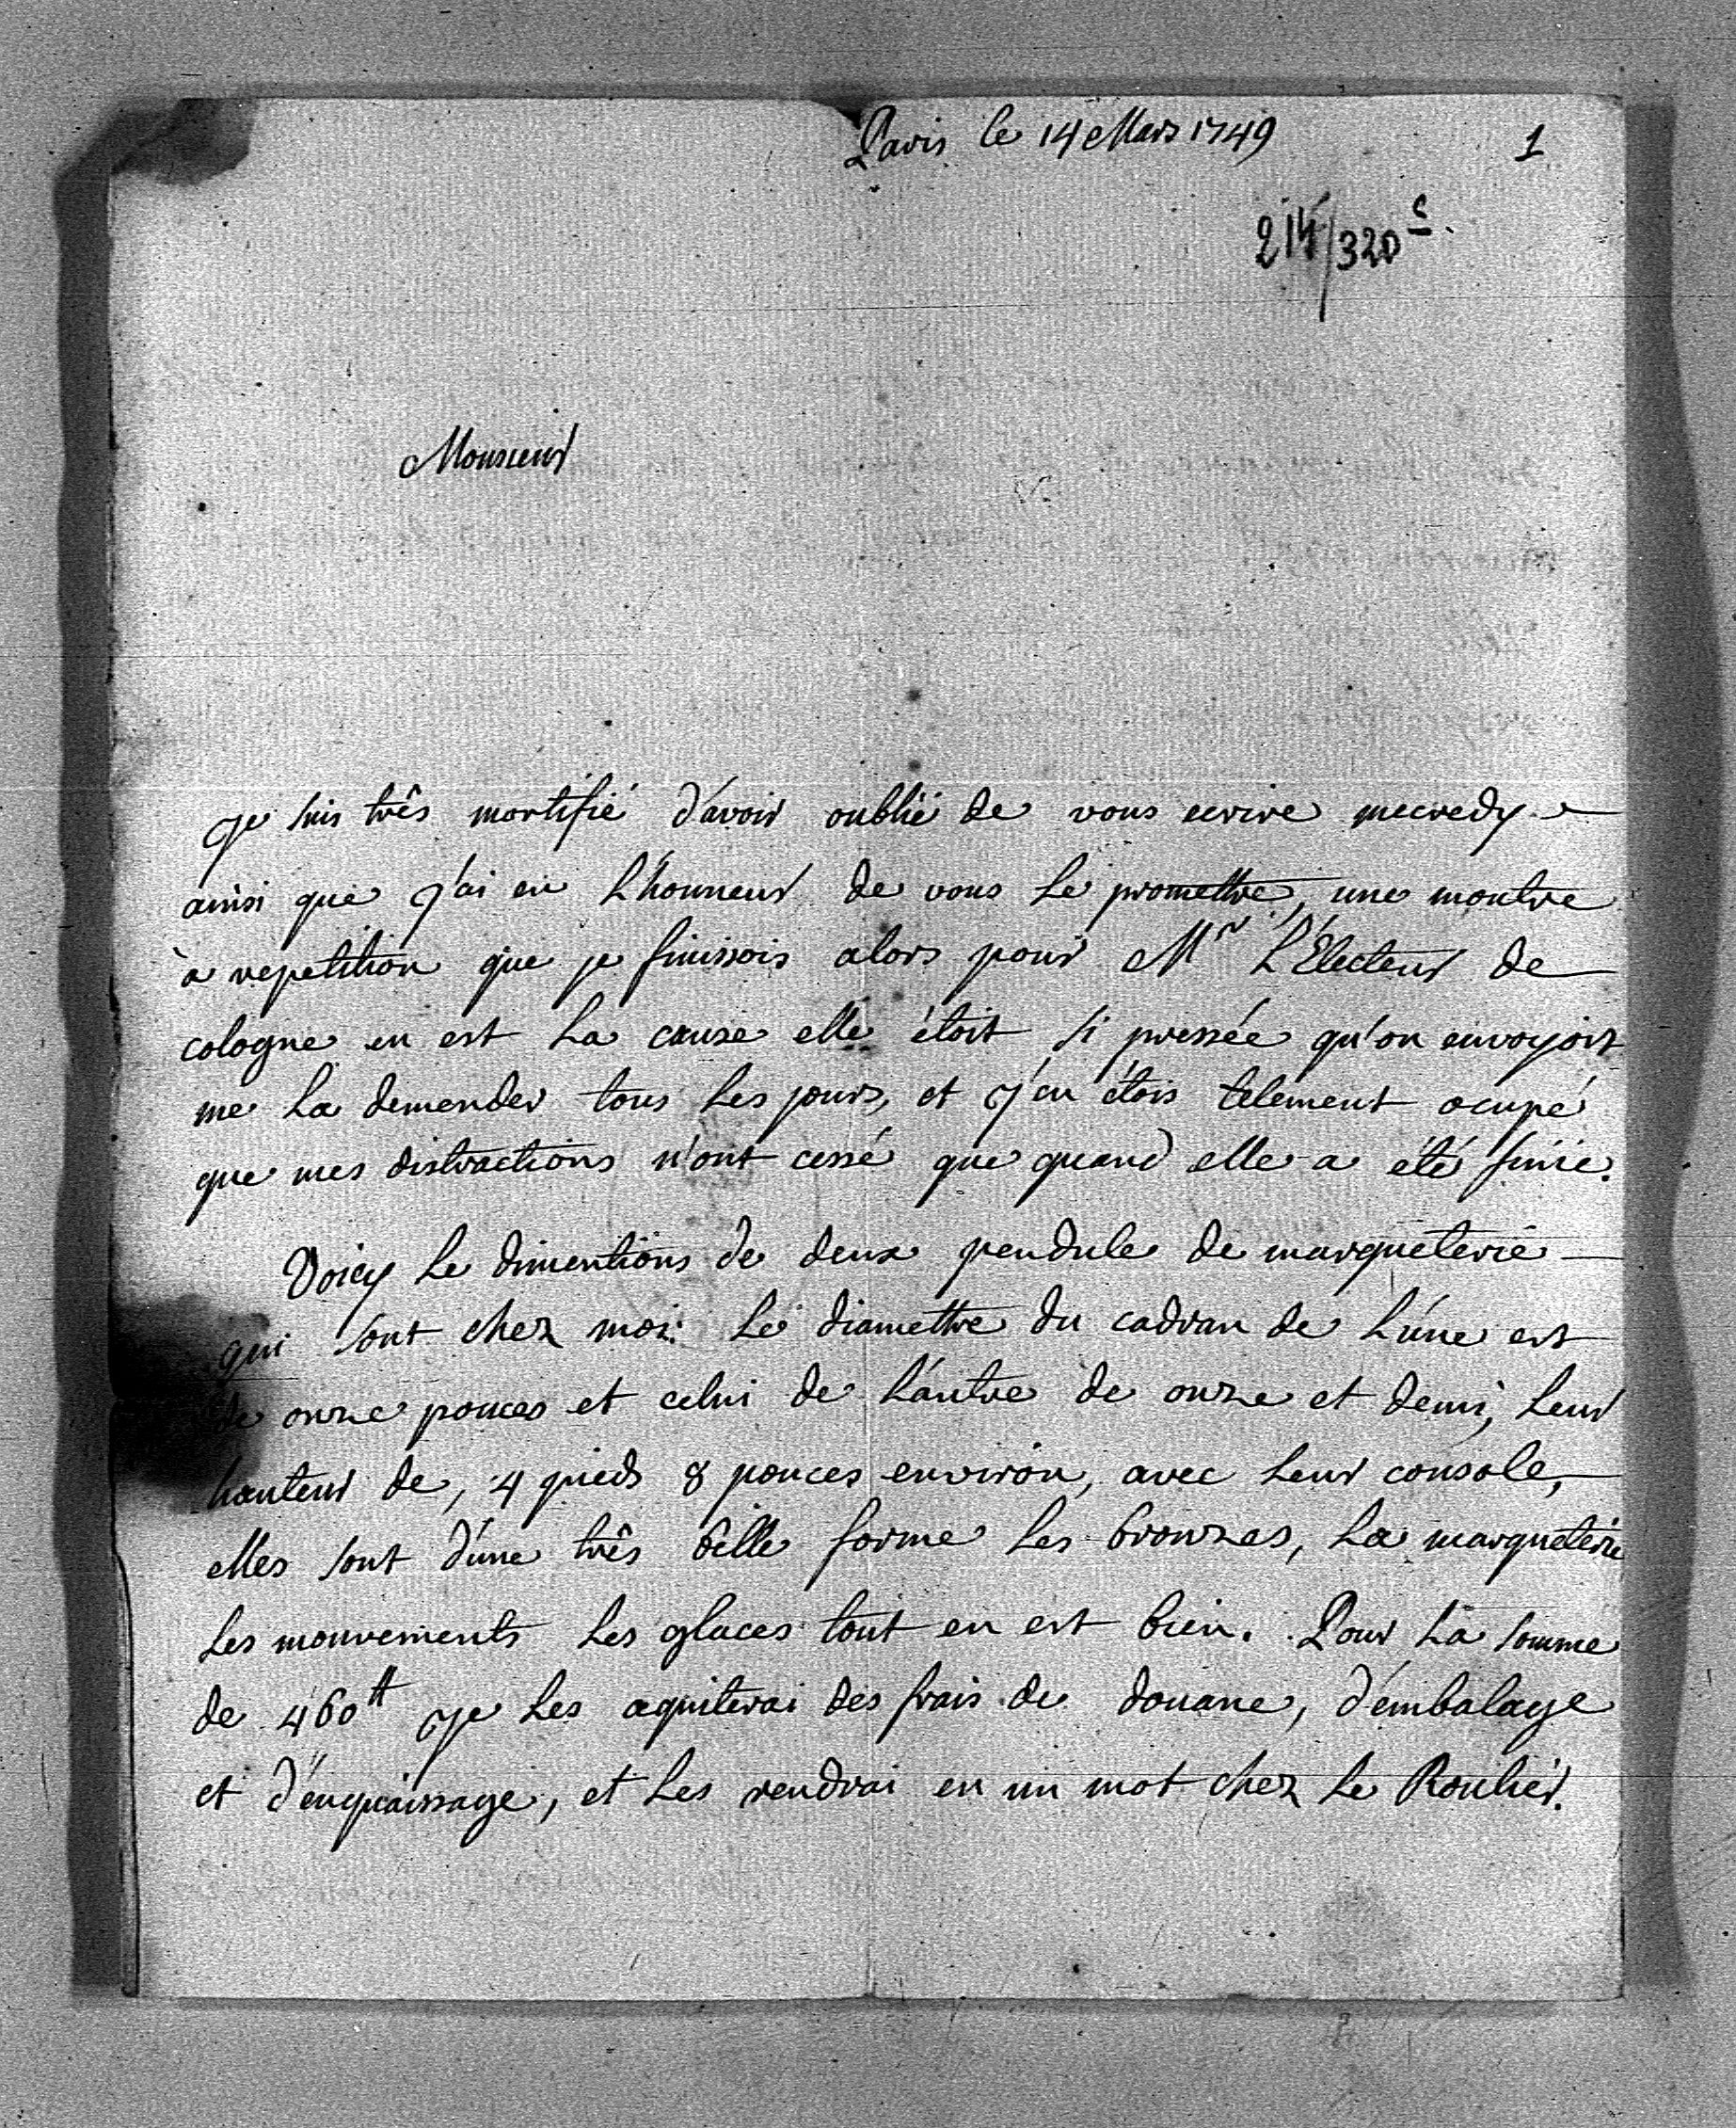 Paris le 14 Mars 1749
1
214/320 c.
Monsieur
Je suis très mortifié d'avoir oublié de vous ecrire mecredy
ainsi que j'ai eu L'honneur de vous Le promettre, une montre
à repetition que je finissois alors pour Mr L'Electeur de
cologne en est La cause elle étoit si pressée qu'on envoyoit
me La demender tous Les jours, et j'en étois telement ocupé
que mes distractions n'ont cessé que quand elle a été finie.
Voicy Le dimentions de deux pendule de marqueterie
qui sont chez moi: Le diamettre du cadran de L'une est
de onze pouces et celui de L'autre de onze et demi, Leur
hauteur de, 4 pieds 8 pouces environ, avec Leur console,
elles sont d'une très belle forme Les bronzes, La marqueterie
Les mouvements Les glaces tout en est bien. Pour La somme
de 460tt Je Les aquiterai des frais de douane, d'embalage
et d'enquaissage, et Les rendrai en un mot chez Le Roulier.